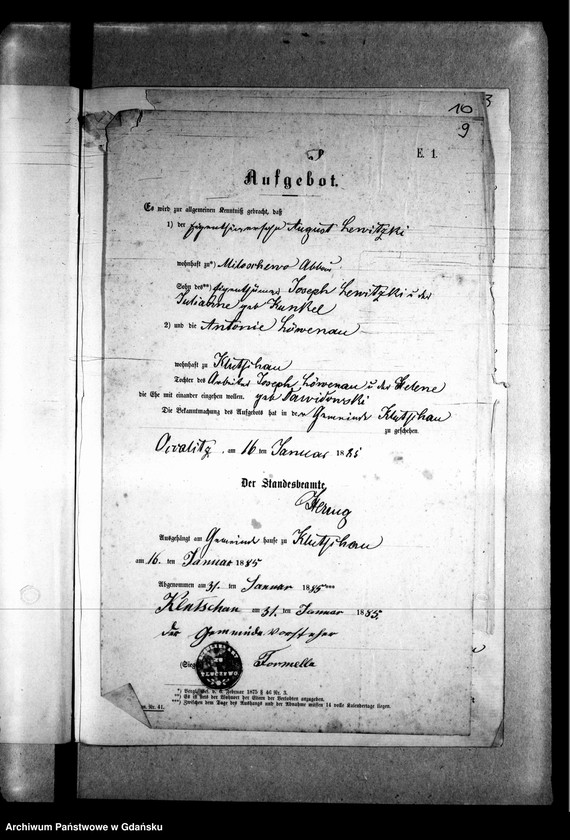 10
9
3
E. 1.
Aufgebot.
Es wird zur allgemeinen Kenntniß gebracht, daß
1) der Eigenthümersohn August Lewitzki
wohnhaft zu*) Miloschewo Abbau
Sohn des**) Eigenthümers Joseph Lewitzki u der
Julianne geb Kunkel
2) und die Antonie Löwenau
wohnhaft zu Klutschau
Tochter des Arbeiters Joseph Löwenau u der Helene
die Ehe mit einander eingehen wollen. geb Dawidowski
Die Bekanntmachung des Aufgebots hat in der Gemeinde Klutschau
zu geschehen.
am 16 ten Januar 1885
Der Standesbeamte
Ausgehängt am Gemeinde hause zu Klutschau
am 16. ten Januar 1885
Abgenommen am 31. ten Januar 1885***
Klutschau am 31. ten Januar 1885.
der Gemeindevorsteher
(Siegel) Formella
*) Vergl. Ges. v. 6. Februar 1875 § 46 Nr. 3.
**) Es ist stets der Wohnort der Eltern der Verlobten anzugeben.
***) Zwischen dem Tage des Aushangs und der Abnahme müssen 14 volle Kalendertage liegen.
Nr. 41.
Archiwum Państwowe w Gdańsku